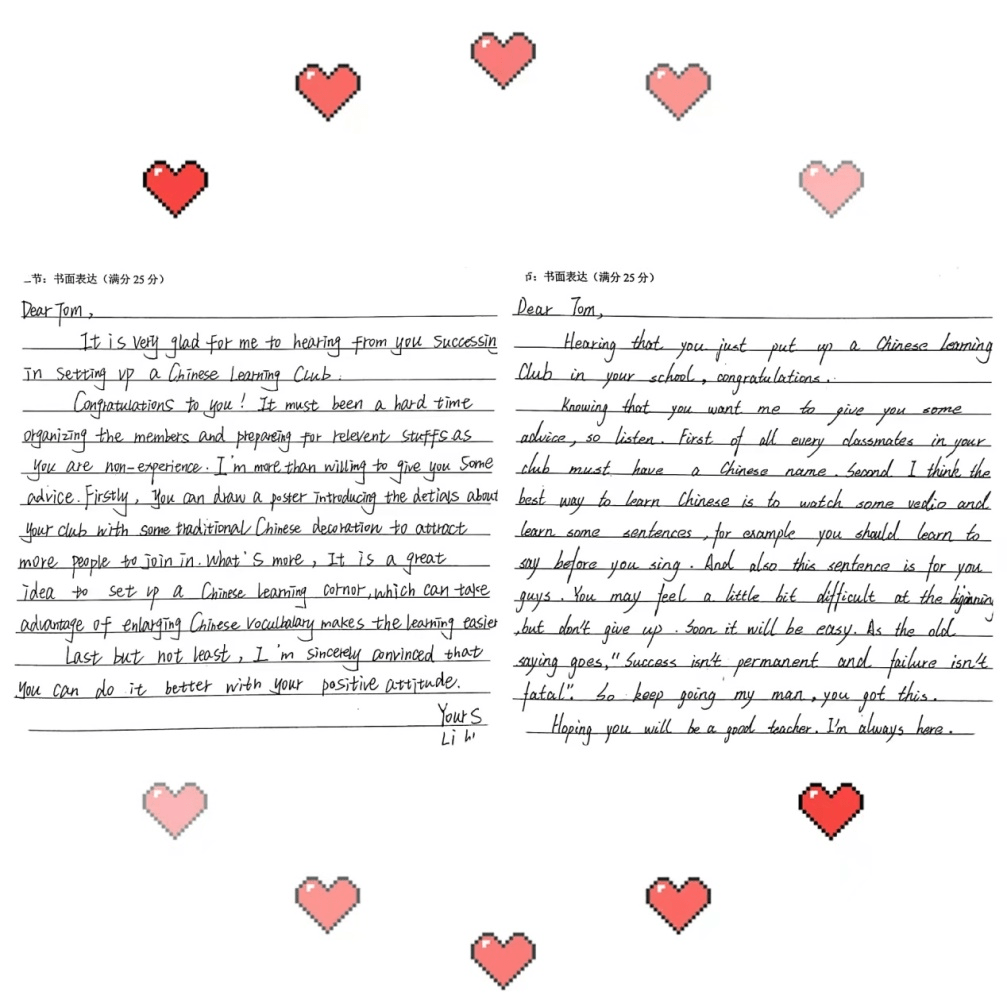 _节：书面表达（满分 25 分）
Dear Tom,
It is very glad for me to hearing from you successin
in setting up a Chinese Learning Club.
Congratulations to you! It must been a hard time
organizing the members and prepareing for relevent stuffs as
you are non-experience. I'm more than willing to give you some
advice. Firstly, you can draw a poster introducing the detials about
your club with some traditional Chinese decoration to attract
more people to join in. What's more, It is a great
idea to set up a Chinese learning cornor, which can take
advantage of enlarging Chinese Voculbalary makes the learning easier
Last but not least, I'm sincerely convinced that
you can do it better with your positive attitude.
Yours
Li Hi
节：书面表达（满分 25 分）
Dear Tom,
Hearing that you just put up a Chinese learning
Club in your school, congratulations.
Knowing that you want me to give you some
advice, so listen. First of all every classmates in your
club must have a Chinese name. Second I think the
best way to learn Chinese is to watch some vedio and
learn some sentences, for example you should learn to
say before you sing. And also this sentence is for you
guys. You may feel a little bit difficult at the biginning
,but don't give up. Soon it will be easy. As the old
saying goes," Success isn't permanent and failure isn't
fatal". So keep going my man, you got this.
Hoping you will be a good teacher. I'm always here.